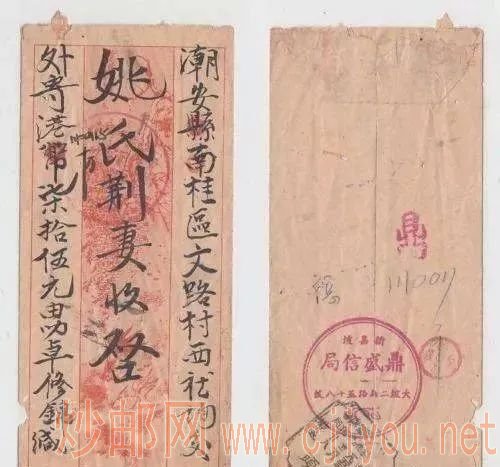 潮安縣南桂區文路村西社
姚氏荆妻收啓
外寄港幣柒拾伍元由叻卓修錦緘
鼎
新嘉坡
鼎盛信局
大坡二馬路五十八號
炒邮网 www.cjiyou.net